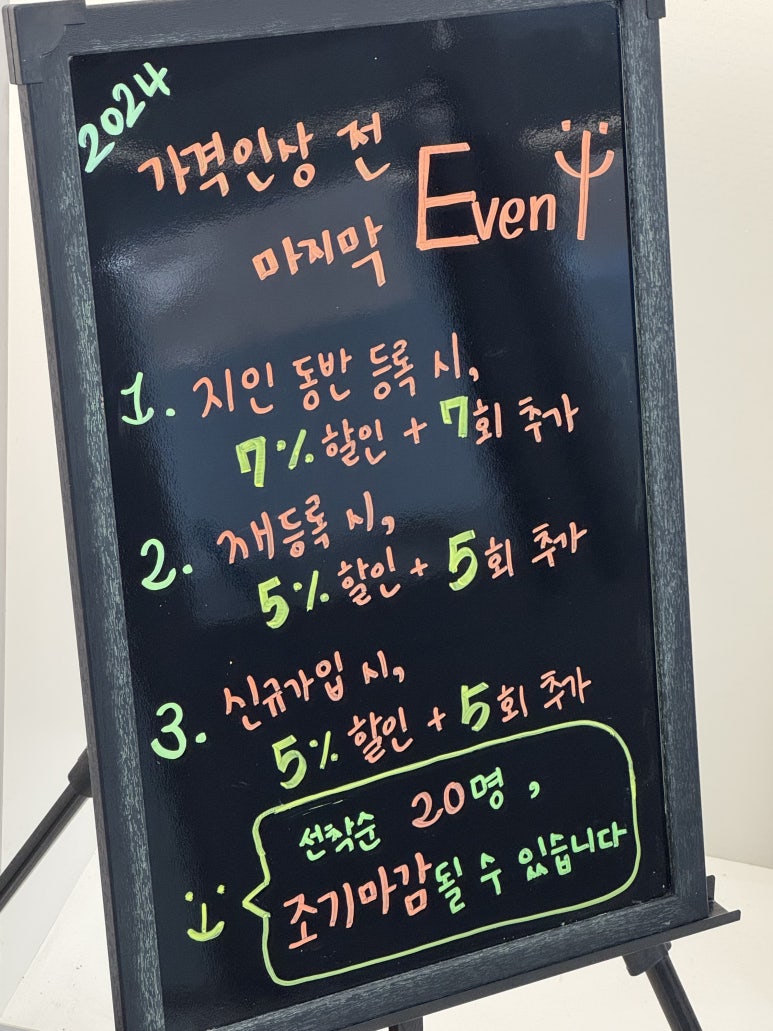 2024
가격인상 전
마지막 Event
1. 지인 동반 등록 시,
7% 할인 + 7회 추가
2. 재등록 시,
5% 할인 + 5회 추가
3. 신규가입 시,
5% 할인 + 5회 추가
선착순 20명,
조기마감될 수 있습니다